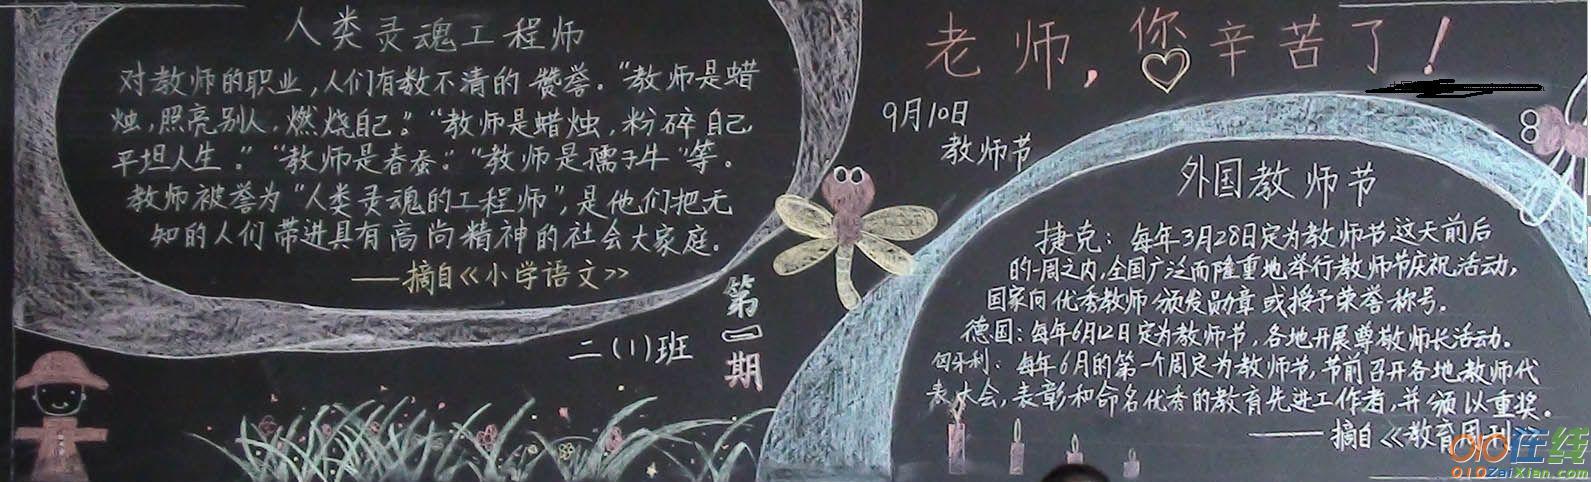 人类灵魂工程师
对教师的职业，人们有数不清的赞誉。“教师是蜡
烛，照亮别人，燃烧自己。”“教师是蜡烛，粉碎自己，
平坦人生。”“教师是春蚕。”“教师是孺子牛”等。
教师被誉为“人类灵魂的工程师”，是他们把无
知的人们带进具有高尚精神的社会大家庭。
——摘自《小学语文》
二(1)班
第一期
老师，你辛苦了！
9月10日
教师节
外国教师节
捷克：每年3月28日定为教师节这天前后
的一周之内，全国广泛而隆重地举行教师节庆祝活动，
国家向优秀教师颁发勋章或授予荣誉称号。
德国：每年6月12日定为教师节，各地开展尊敬师长活动。
匈牙利：每年6月的第一个周定为教师节，节前召开各地教师代
表大会，表彰和命名优秀的教育先进工作者，并颁以重奖。
——摘自《教育周刊》
010在线
010ZaiXian.com